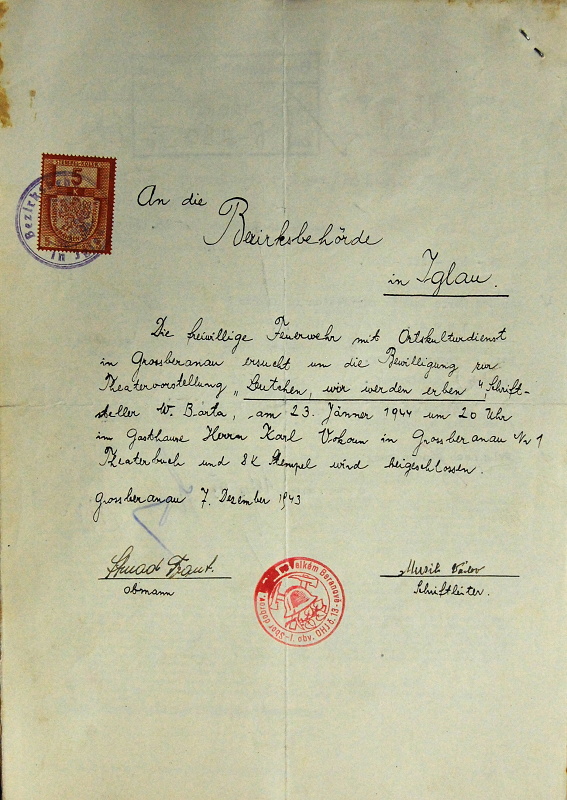 STEMPEL-KOLEK
5
K
An die
Bezirksbehörde
in Iglau.
Die freiwillige Feuerwehr mit Ortskulturdienst
in Grossberanau ersucht um die Bewilligung zur
Theatervorstellung „Leutchen, wir werden erben", Schrift-
steller W. Bárta, am 23. Jänner 1944 um 20 Uhr
im Gasthause Herrn Karl Vokoun in Grossberanau Nr 1
Theaterbuch und 8K Stempel wird beigeschlossen.
Grossberanau 7. Dezember 1943
Obmann
Musil
Schriftleiter.
elkém Beranově
sbor dobr
I. obv. OHJ č. 13
Bezirks
in